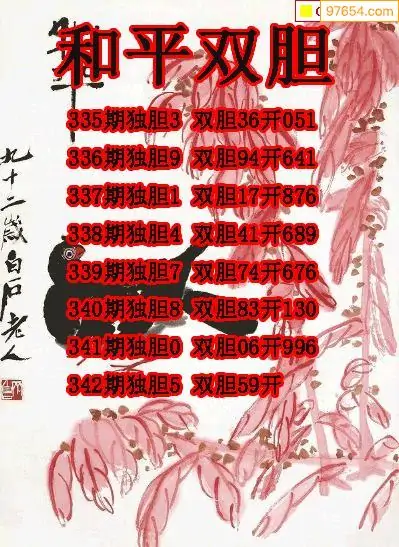 97654.com
和平双胆
335期独胆3 双胆36开051
336期独胆9 双胆94开641
337期独胆1 双胆17开876
338期独胆4 双胆41开689
339期独胆7 双胆74开676
340期独胆8 双胆83开130
341期独胆0 双胆06开996
342期独胆5 双胆59开
九十二岁白石老人